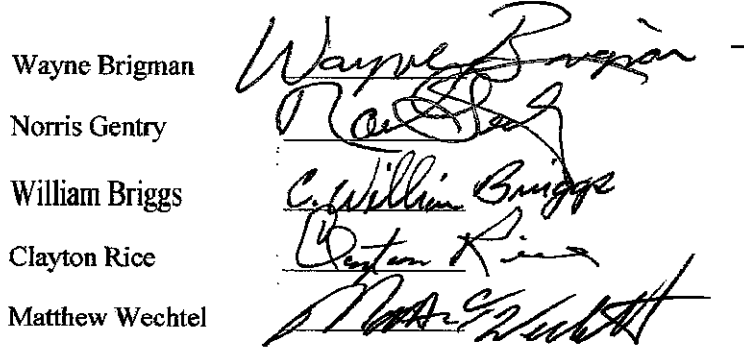 Wayne Brigman Wayne Brigman
Norris Gentry
William Briggs C. William Briggs
Clayton Rice Clayton Rice
Matthew Wechtel